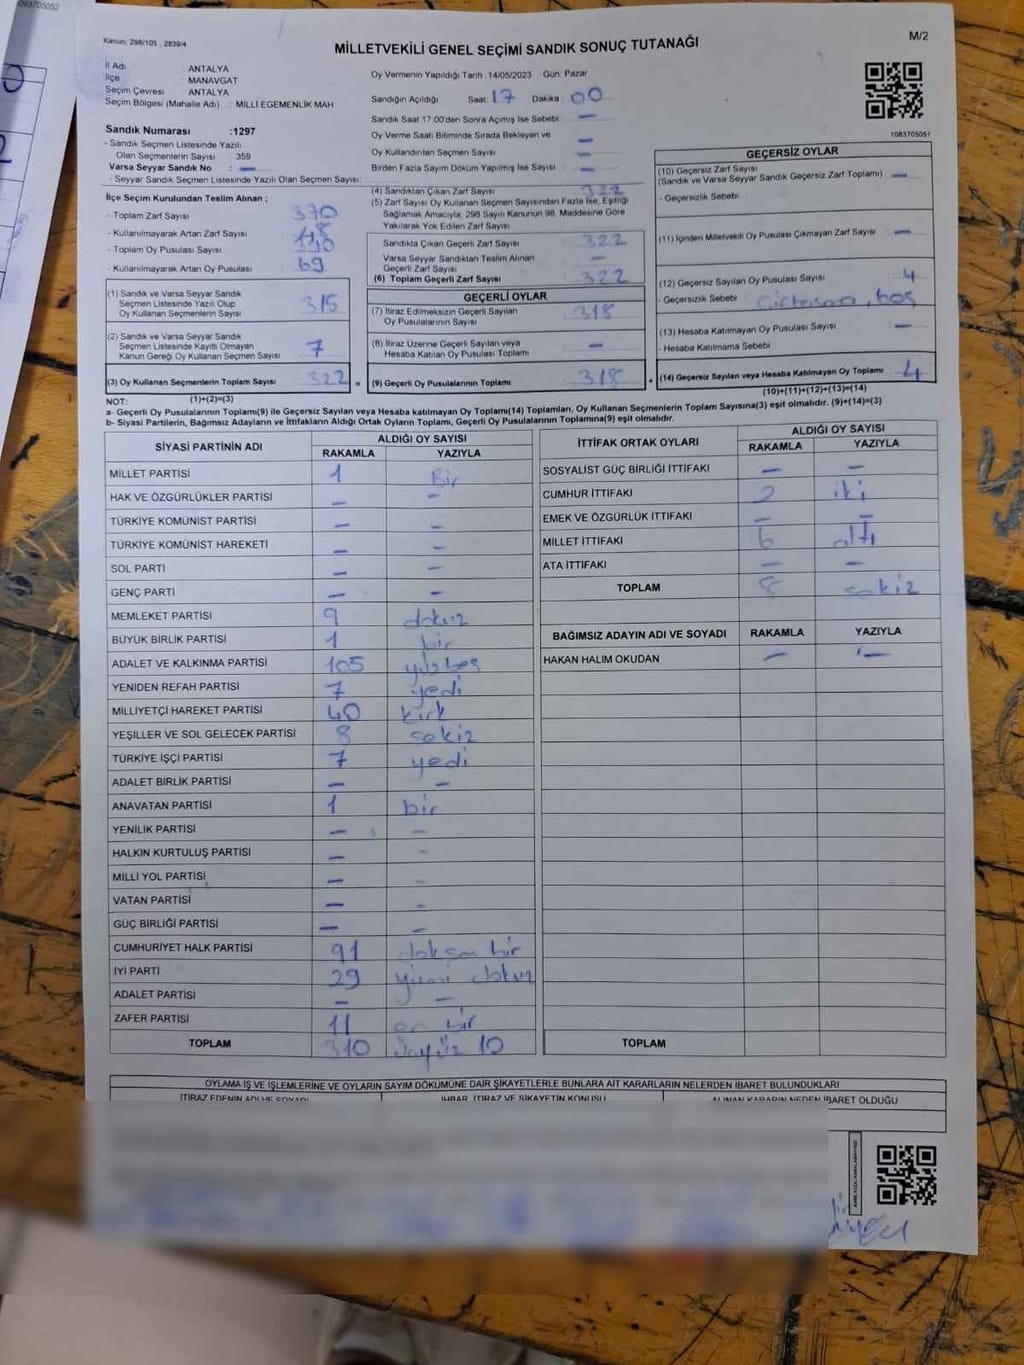 093705052
Kanun, 298/105 , 2839/4
MİLLETVEKİLİ GENEL SEÇİMİ SANDIK SONUÇ TUTANAĞI
M/2
İl Adı ANTALYA
İlçe MANAVGAT
Seçim Çevresi ANTALYA
Seçim Bölgesi (Mahalle Adı) : MİLLİ EGEMENLİK MAH
Sandık Numarası :1297
- Sandık Seçmen Listesinde Yazılı
Olan Seçmenlerin Sayısı 359
Varsa Seyyar Sandık No : —
- Seyyar Sandık Seçmen Listesinde Yazılı Olan Seçmen Sayısı:
Oy Vermenin Yapıldığı Tarih :14/05/2023 Gün: Pazar
Sandığın Açıldığı Saat: 17 Dakika : 00
Sandık Saat 17:00'den Sonra Açımış İse Sebebi : —
Oy Verme Saati Bitiminde Sırada Bekleyen ve —
Oy Kullandırılan Seçmen Sayısı —
Birden Fazla Sayım Döküm Yapılmış İse Sayısı : —
1083705051
İlçe Seçim Kurulundan Teslim Alınan ;
- Toplam Zarf Sayısı 370
- Kullanılmayarak Artan Zarf Sayısı
- Toplam Oy Pusulası Sayısı
- Kullanılmayarak Artan Oy Pusulası 69
(1) Sandık ve Varsa Seyyar Sandık
Seçmen Listesinde Yazılı Olup
Oy Kullanan Seçmenlerin Sayısı 315
(2) Sandık ve Varsa Seyyar Sandık
Seçmen Listesinde Kayıtlı Olmayan
Kanun Gereği Oy Kullanan Seçmen Sayısı 7
(3) Oy Kullanan Seçmenlerin Toplam Sayısı 322 =
(1)+(2)=(3)
(4) Sandıktan Çıkan Zarf Sayısı 322
(5) Zarf Sayısı Oy Kullanan Seçmen Sayısından Fazla İse, Eşitliği
Sağlamak Amacıyla, 298 Sayılı Kanunun 98. Maddesine Göre
Yakılarak Yok Edilen Zarf Sayısı
Sandıkta Çıkan Geçerli Zarf Sayısı 322
Varsa Seyyar Sandıktan Teslim Alınan
Geçerli Zarf Sayısı —
(6) Toplam Geçerli Zarf Sayısı 322
GEÇERLİ OYLAR
(7) İtiraz Edilmeksizin Geçerli Sayılan
Oy Pusulalarının Sayısı 318
(8) İtiraz Üzerine Geçerli Sayılan veya
Hesaba Katılan Oy Pusulası Toplamı —
(9) Geçerli Oy Pusulalarının Toplamı 318 +
GEÇERSİZ OYLAR
(10) Geçersiz Zarf Sayısı
(Sandık ve Varsa Seyyar Sandık Geçersiz Zarf Toplamı) —
- Geçersizlik Sebebi
(11) İçinden Milletvekili Oy Pusulası Çıkmayan Zarf Sayısı —
(12) Geçersiz Sayılan Oy Pusulası Sayısı 4
- Geçersizlik Sebebi boş
(13) Hesaba Katılmayan Oy Pusulası Sayısı —
- Hesaba Katılmama Sebebi
(14) Geçersiz Sayılan veya Hesaba Katılmayan Oy Toplamı 4
(10)+(11)+(12)+(13)=(14)
NOT:
a- Geçerli Oy Pusulalarının Toplamı(9) ile Geçersiz Sayılan veya Hesaba katılmayan Oy Toplamı(14) Toplamları, Oy Kullanan Seçmenlerin Toplam Sayısına(3) eşit olmalıdır. (9)+(14)=(3)
b- Siyasi Partilerin, Bağımsız Adayların ve İttifakların Aldığı Oyların Toplamı, Geçerli Oy Pusulalarının Toplamına(9) eşit olmalıdır.
SİYASİ PARTİNİN ADI ALDIĞI OY SAYISI
RAKAMLA YAZIYLA
MİLLET PARTİSİ 1 Bir
HAK VE ÖZGÜRLÜKLER PARTİSİ — —
TÜRKİYE KOMÜNİST PARTİSİ — —
TÜRKİYE KOMÜNİST HAREKETİ — —
SOL PARTİ — —
GENÇ PARTİ — —
MEMLEKET PARTİSİ 9 dokuz
BÜYÜK BİRLİK PARTİSİ 1 bir
ADALET VE KALKINMA PARTİSİ 105 yüz beş
YENİDEN REFAH PARTİSİ 7 yedi
MİLLİYETÇİ HAREKET PARTİSİ 40 kırk
YEŞİLLER VE SOL GELECEK PARTİSİ 8 sekiz
TÜRKİYE İŞÇİ PARTİSİ 7 yedi
ADALET BİRLİK PARTİSİ — —
ANAVATAN PARTİSİ 1 bir
YENİLİK PARTİSİ — —
HALKIN KURTULUŞ PARTİSİ — —
MİLLİ YOL PARTİSİ — —
VATAN PARTİSİ — —
GÜÇ BİRLİĞİ PARTİSİ — —
CUMHURİYET HALK PARTİSİ 91 doksan bir
İYİ PARTİ 29 yirmi dokuz
ADALET PARTİSİ — —
ZAFER PARTİSİ 11 on bir
TOPLAM 310 üçyüz 10
İTTİFAK ORTAK OYLARI ALDIĞI OY SAYISI
RAKAMLA YAZIYLA
SOSYALİST GÜÇ BİRLİĞİ İTTİFAKI — —
CUMHUR İTTİFAKI 2 iki
EMEK VE ÖZGÜRLÜK İTTİFAKI — —
MİLLET İTTİFAKI 6 altı
ATA İTTİFAKI — —
TOPLAM 8 sekiz
BAĞIMSIZ ADAYIN ADI VE SOYADI RAKAMLA YAZIYLA
HAKAN HALİM OKUDAN — —
TOPLAM
OYLAMA İŞ VE İŞLEMLERİNE VE OYLARIN SAYIM DÖKÜMÜNE DAİR ŞİKAYETLERLE BUNLARA AİT KARARLARIN NELERDEN İBARET BULUNDUKLARI
İTİRAZ EDENİN ADI VE SOYADI İHBAR, İTİRAZ VE ŞİKAYETİN KONUSU ALINAN KARARIN NEDEN İBARET OLDUĞU